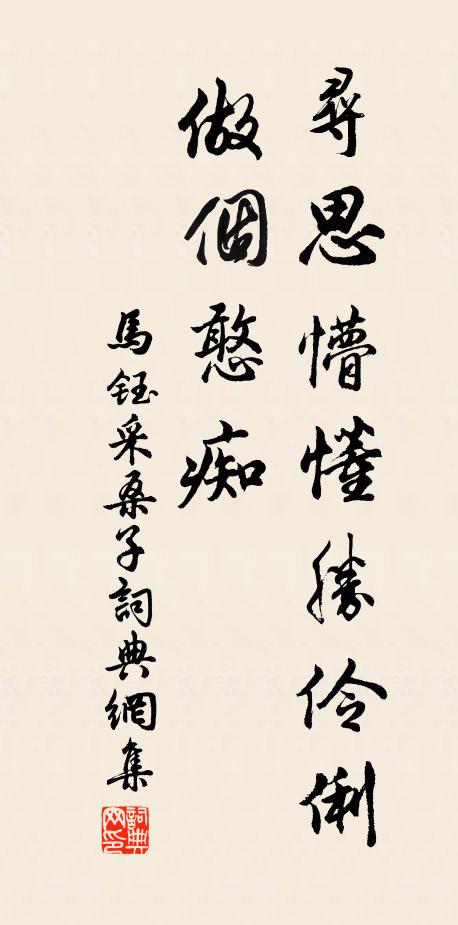 尋思懵懂勝伶俐
做個憨痴
馬鈺采桑子詞典網集
詞典网印